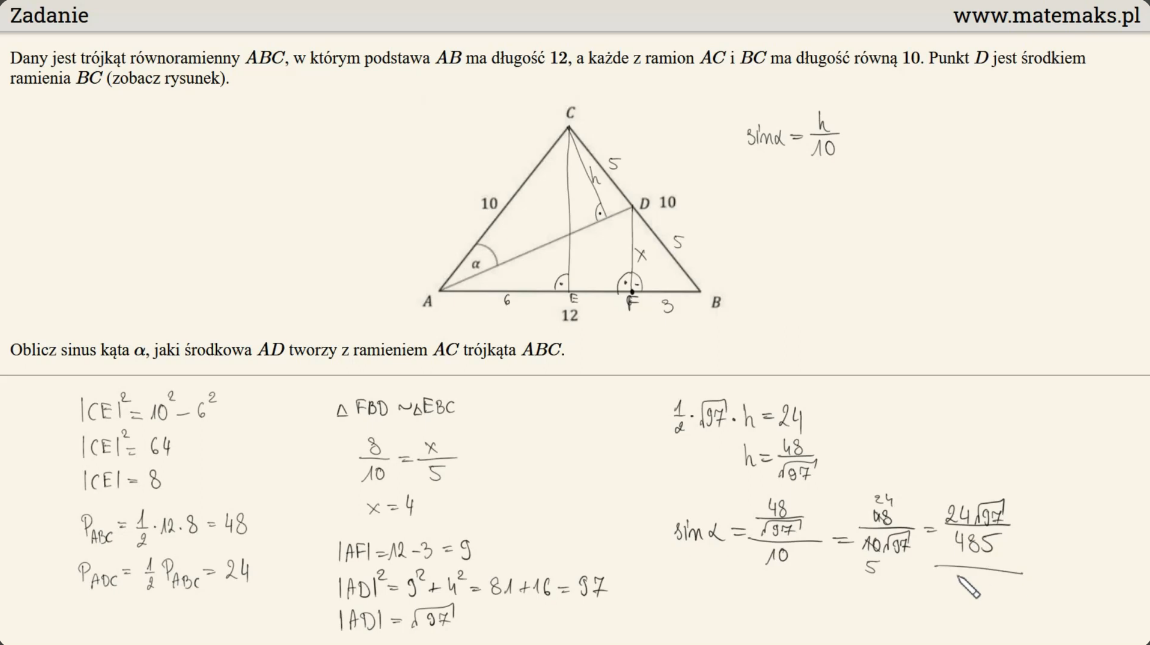 Zadanie
www.matemaks.pl
Dany jest trójkąt równoramienny ABC, w którym podstawa AB ma długość 12, a każde z ramion AC i BC ma długość równą 10. Punkt D jest środkiem
ramienia BC (zobacz rysunek).
C
sinα = h/10
5
h
10
D 10
5
α
x
A
6
E
F
3
B
12
Oblicz sinus kąta α, jaki środkowa AD tworzy z ramieniem AC trójkąta ABC.
|CE|² = 10² − 6²
|CE|² = 64
|CE| = 8
P_ABC = 1/2 · 12 · 8 = 48
P_ADC = 1/2 P_ABC = 24
△ FBD ~ △EBC
8/10 = x/5
x = 4
|AF| = 12 − 3 = 9
|AD|² = 9² + 4² = 81 + 16 = 97
|AD| = √97
1/2 · √97 · h = 24
h = 48/√97
sinα = (48/√97)/10 = 48/(10√97) = 24√97/485
24
5